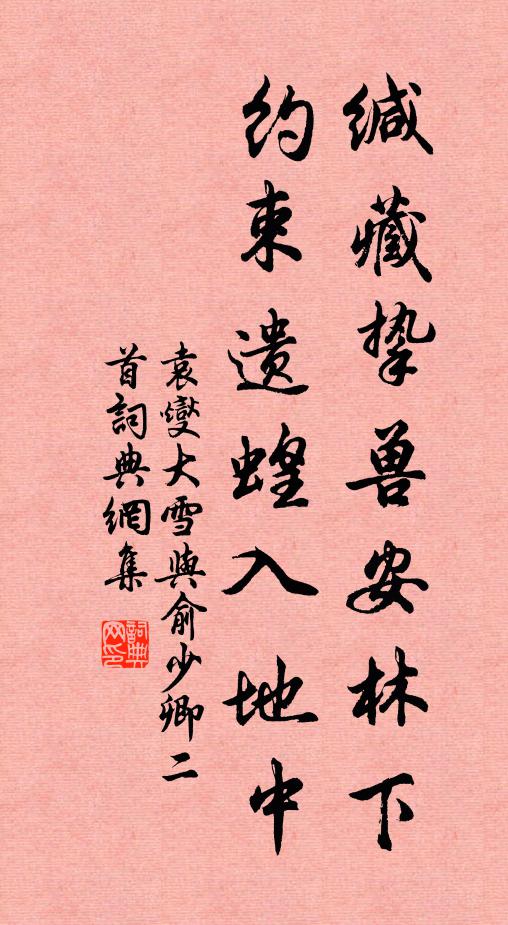 缄藏挚兽安林下
约束遗蝗入地中
袁燮大雪與俞少卿二
首詞典網集
詞典
网印